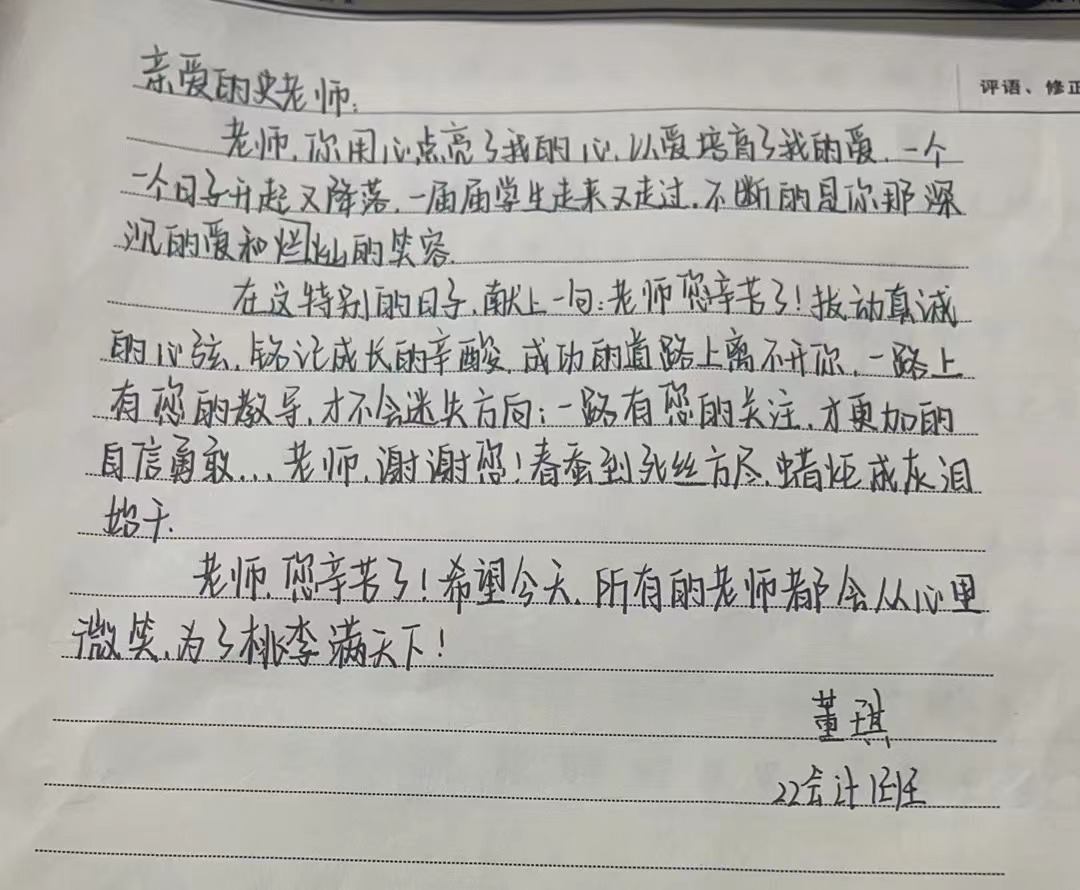 评语、修正
亲爱的史老师:
老师,你用心点亮了我的心,以爱培育了我的爱,一个
一个日子升起又降落,一届届学生走来又走过,不断的是你那深
沉的爱和烂灿的笑容.
在这特别的日子,献上一句:老师您辛苦了!拨动真诚
的心弦,铭记成长的辛酸,成功的道路上离不开你,一路上
有您的教导,才不会迷失方向;一路有您的关注,才更加的
自信勇敢...老师,谢谢您!春蚕到死丝方尽,蜡炬成灰泪
始干.
老师,您辛苦了!希望今天,所有的老师都会从心里
微笑,为了桃李满天下!
董琪
22会计